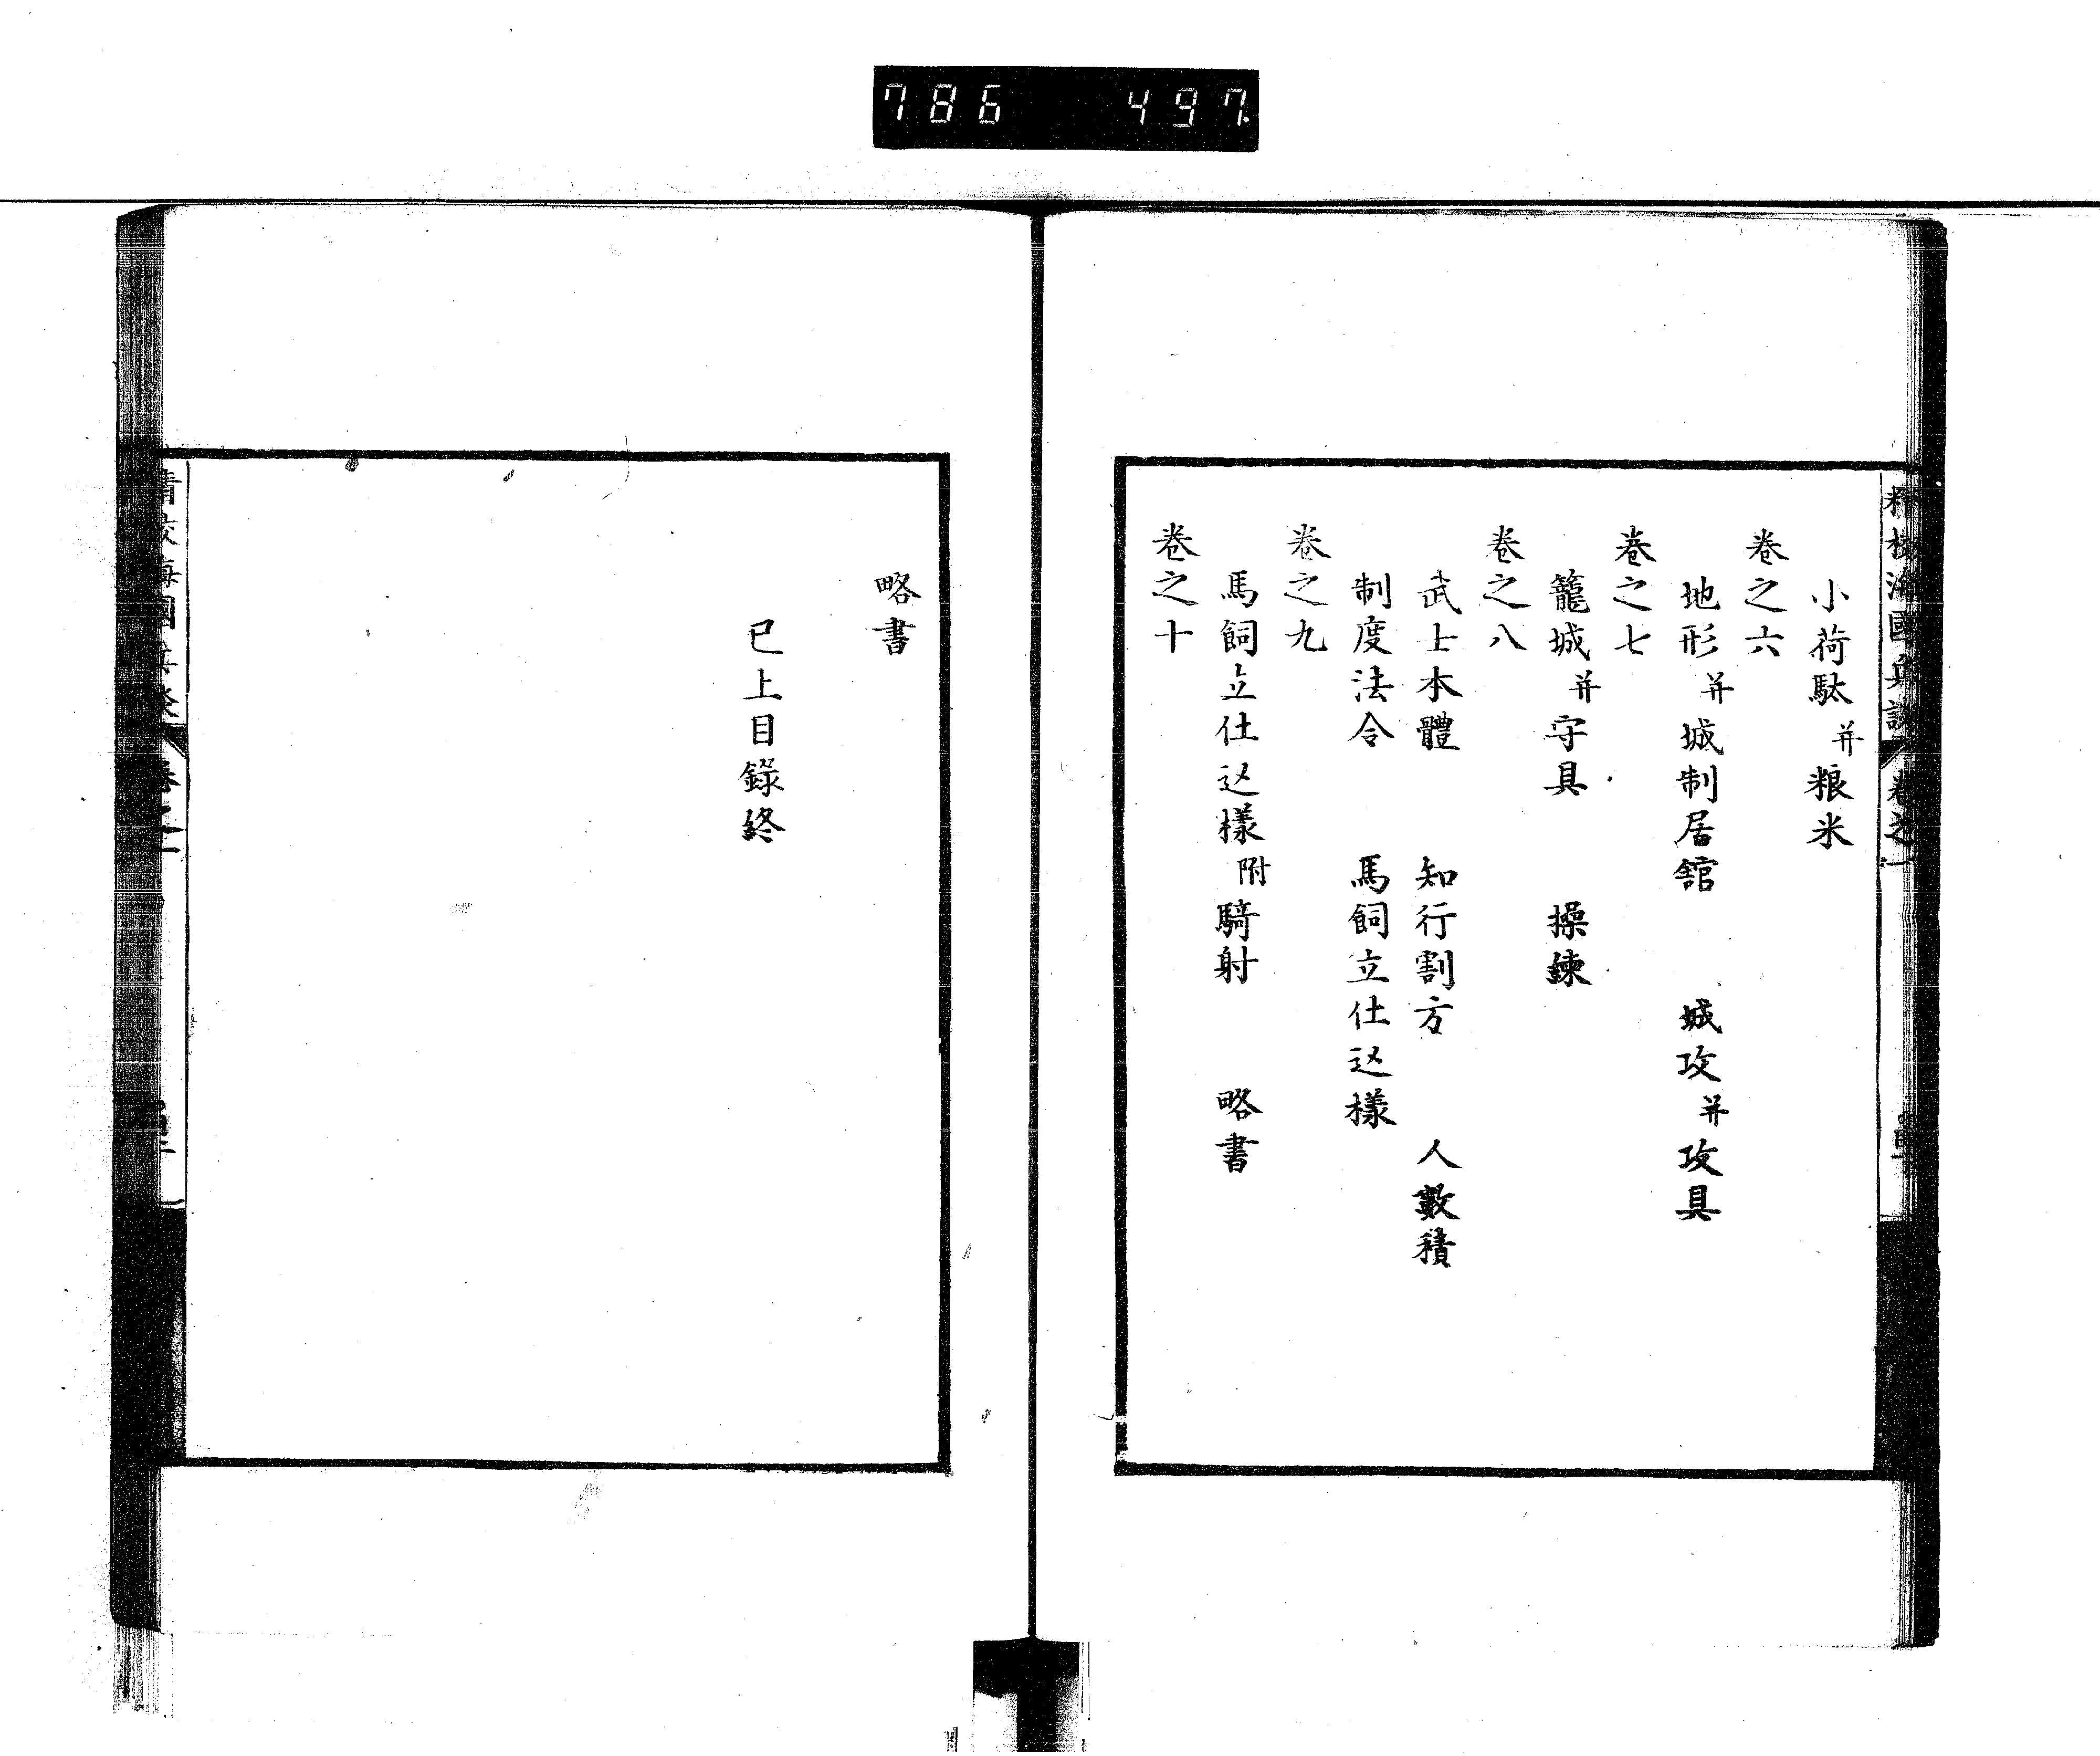 786 497.
精校海國兵談 卷之一
小荷駄并粮米
卷之六
地形并城制居舘 城攻并攻具
卷之七
籠城并守具 操練
卷之八
武士本體 知行割方 人數積
制度法令 馬飼立仕込樣
卷之九
馬飼立仕込樣附騎射 略書
卷之十
略書
已上目錄終
精校海國兵談 卷之一